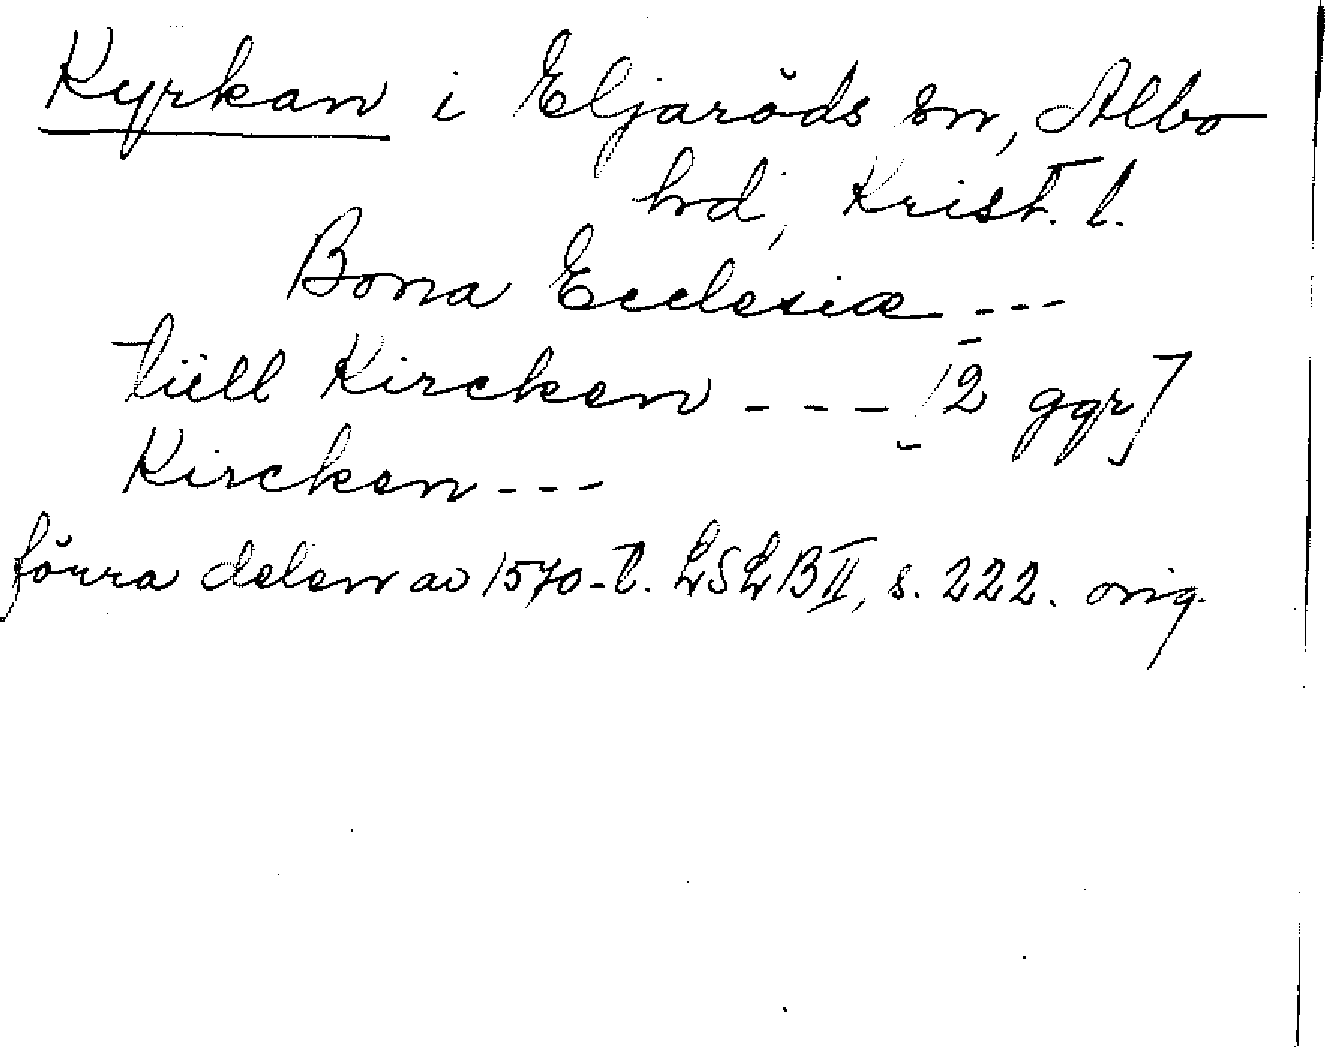 Kyrkan i Eljaröds sn, Albo
hd, Krist. l.
Bona Ecclesiæ ---
tiill Kircken --- [2 ggr]
Kircken ---
förra delen av 1570-t. LSLB II, s. 222. orig.